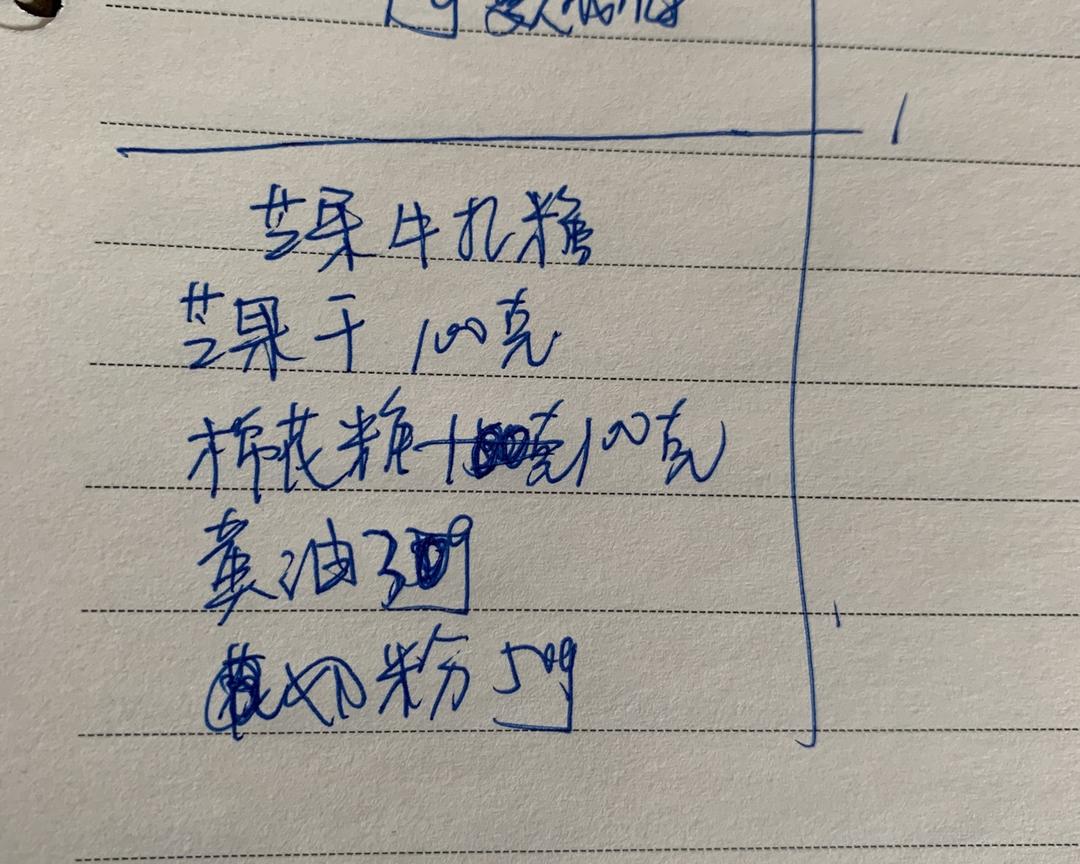 芒果牛扎糖
芒果干 100克
棉花糖 100克
黄油 30g
奶粉 50g